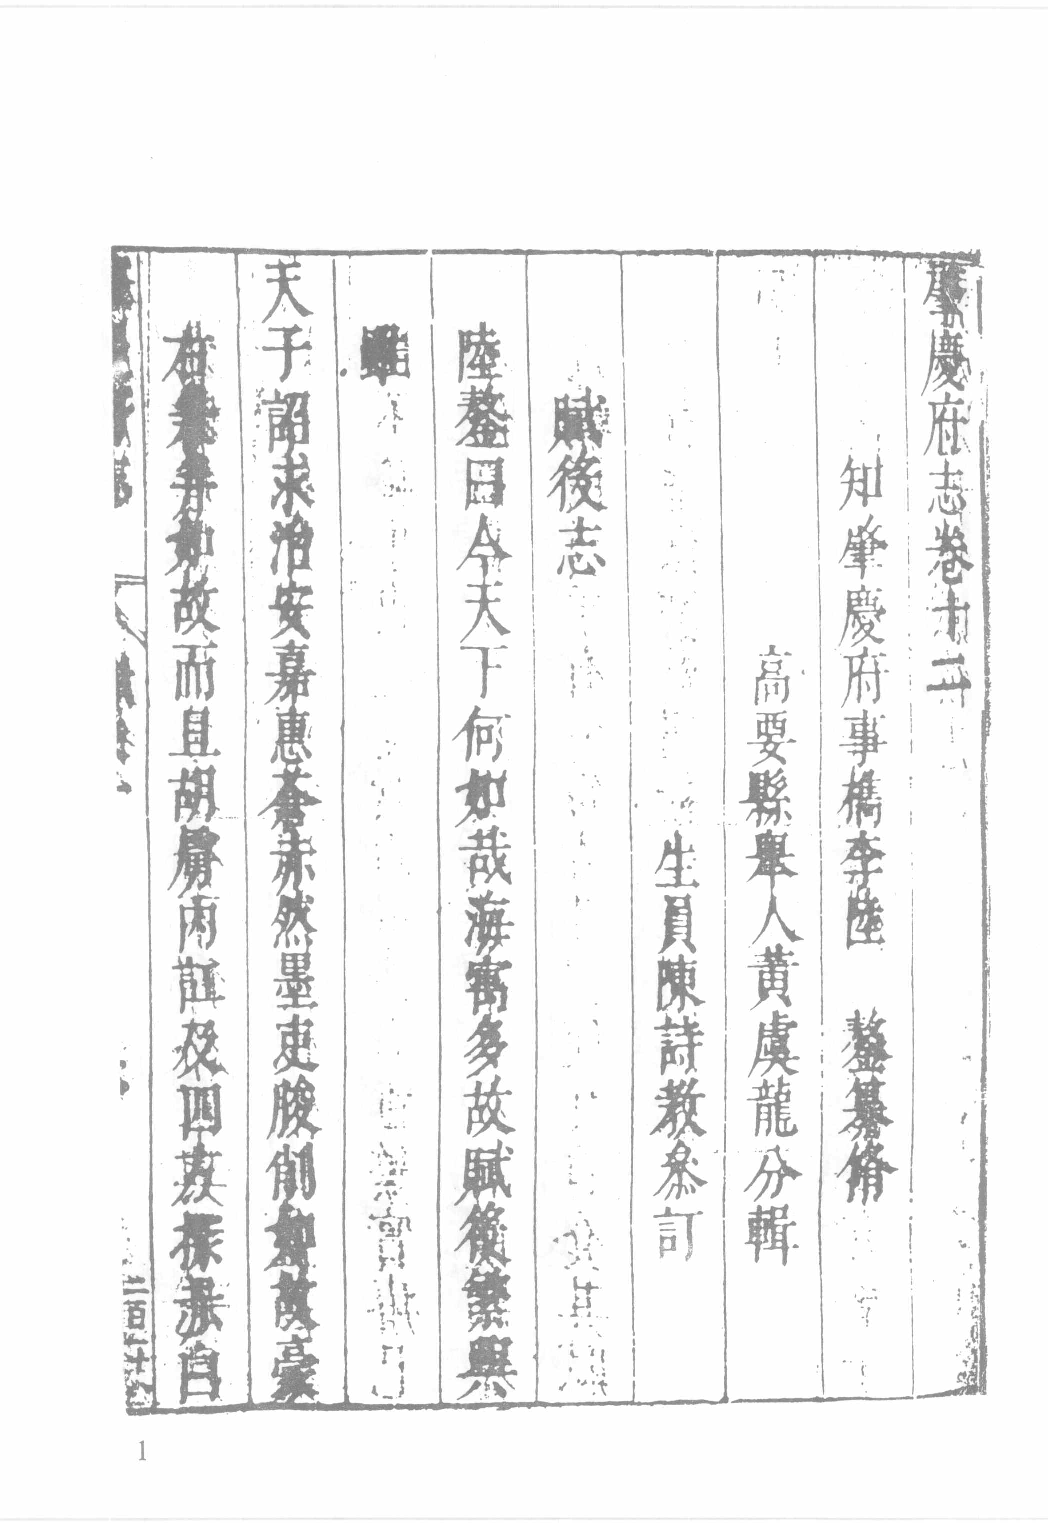 肇慶府志卷十二
知肇慶府事檇李陸 鏊纂脩
高要縣舉人黃虞龍分輯
生員陳詩教叅訂
賦役志
陸鏊曰今天下何如哉海寓多故賦役繁興
雖
天子詔求治安嘉惠蒼赤然墨吏朘削如故豪
右兼并如故而且胡虜內訌及四
二百
1